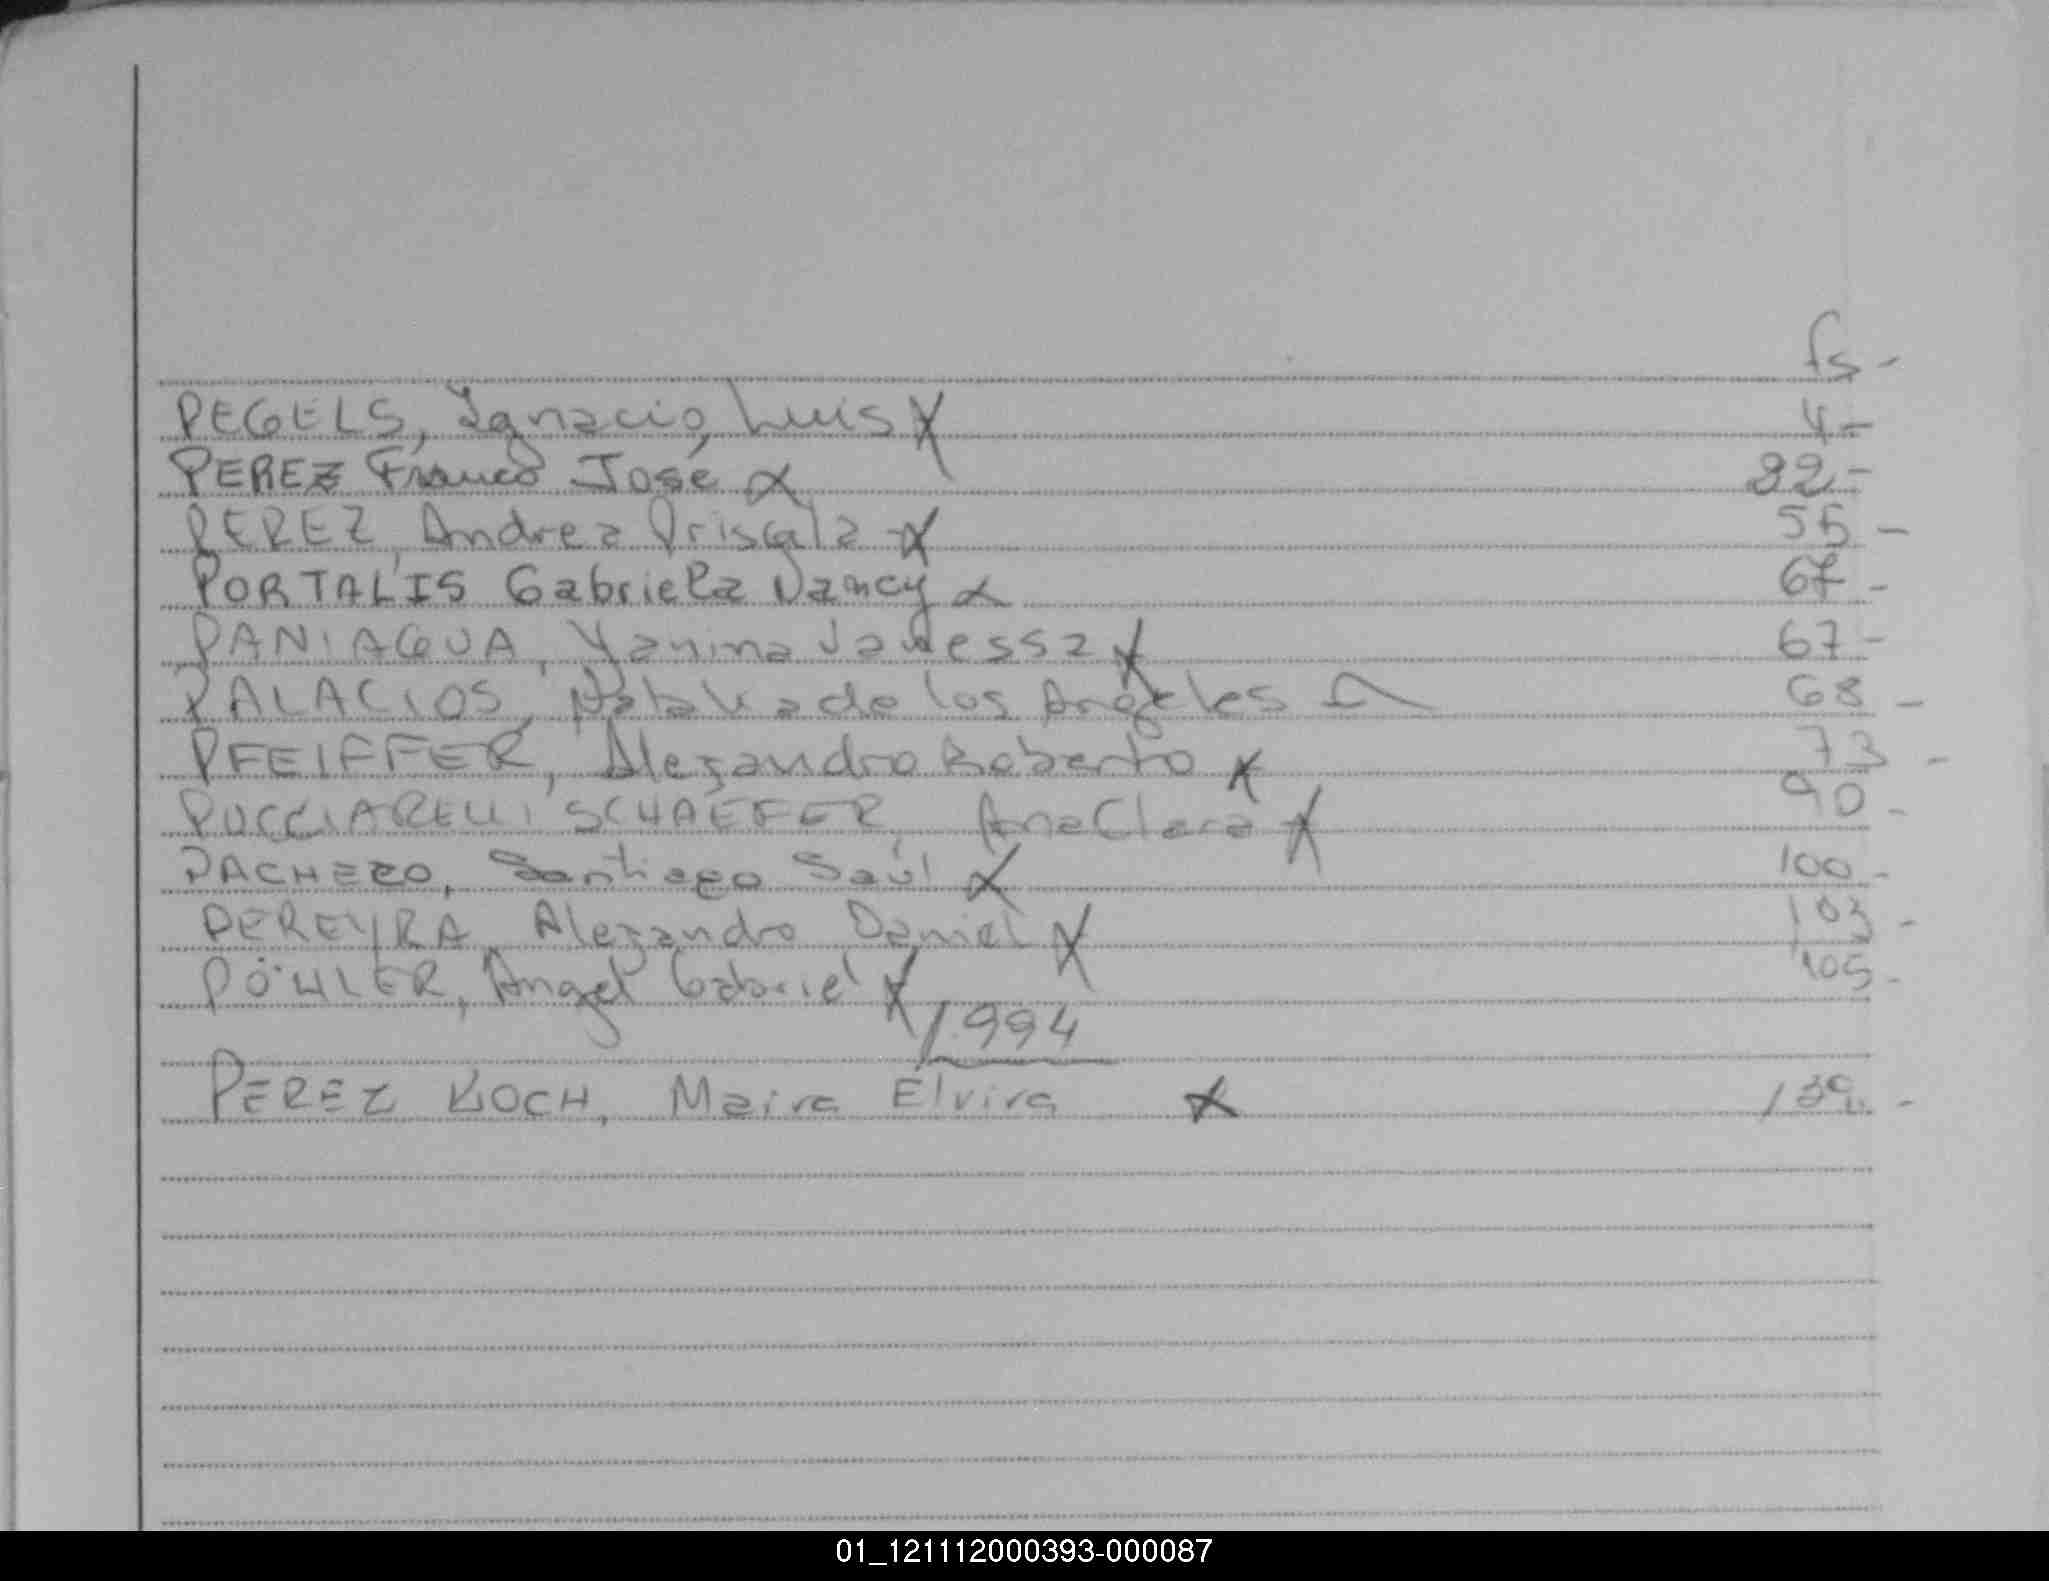 fs-
PEGELS, Ignacio Luis X 4-
PEREZ Franco José X 32-
PEREZ, Andrea Priscala X 55-
PORTALIS Gabriela Nancy X 67-
PANIAGUA, Yanina Vanessa X 67-
PALACIOS, Natalia de los Angeles 68-
PFEIFFER, Alejandro Roberto X 73-
PUCCIARELLI SCHAEFER, Ana Clara X 90-
PACHECO, Santiago Saúl X 100-
PEREYRA, Alejandro Daniel X 103-
PÖHLER, Angel Gabriel X 105-
1994
PEREZ KOCH, Maira Elvira X 139-
01_121112000393-000087